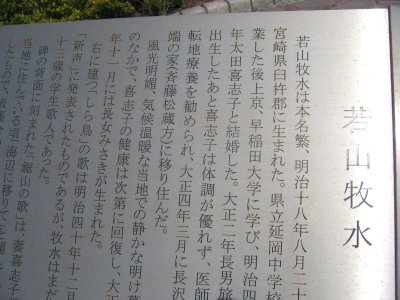 若山牧水
若山牧水は本名繁、明治十八年八月二十
宮崎県臼杵郡に生まれた。県立延岡中学校
業した後上京、早稲田大学に学び、明治四
年太田喜志子と結婚した。大正二年長男旅
出生したあと喜志子は体調が優れず、医師
転地療養を勧められ、大正四年三月に長沢
端の家（斉藤松蔵方）に移り住んだ。
風光明媚、気候温暖な当地での静かな明け暮
のなかで、喜志子の健康は次第に回復し、大正
年十一月には長女みさきが生まれた。
右に建つ「しら鳥」の歌は明治四十年十二月
「新声」に発表されたものであるが、牧水はまだ
十三歳の学生歌人であった。
碑の背面に刻まれた「鋸山の歌」は、妻喜志子
当地に住んでいる頃、海辺に移りて
したもので、